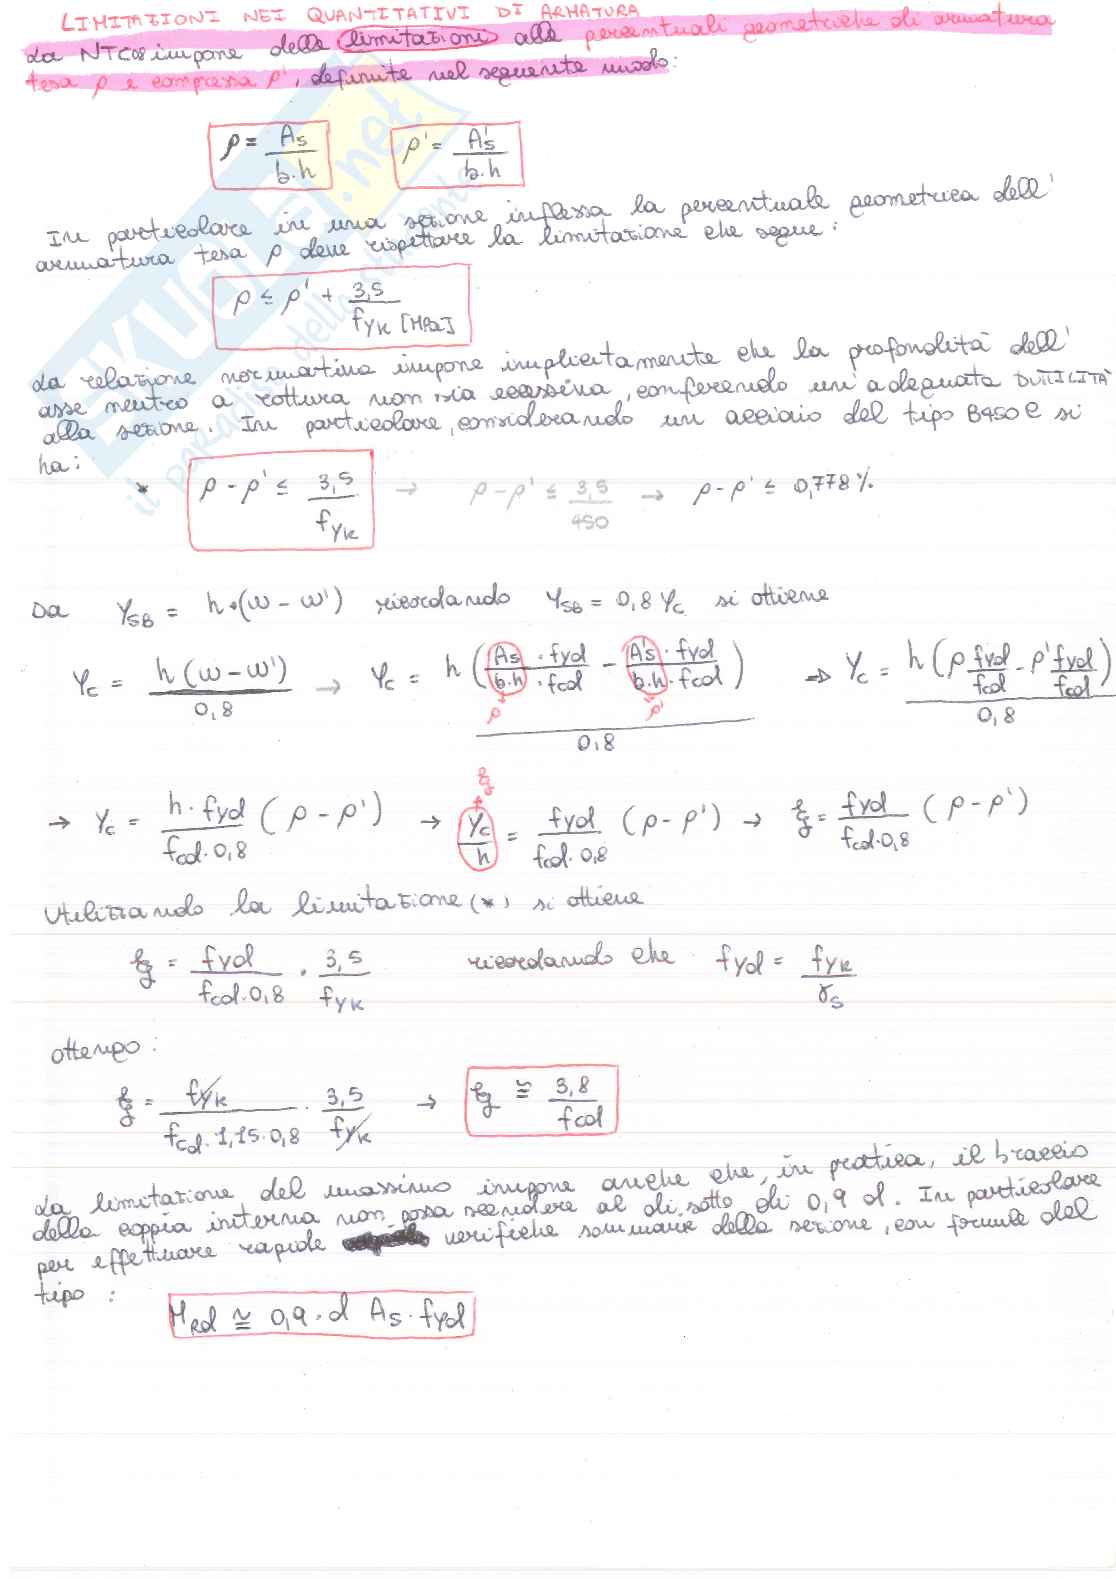 LIMITAZIONI NEI QUANTITATIVI DI ARMATURA
La NTC08 impone delle limitazioni alle percentuali geometriche di armatura
tesa ρ e compressa ρ', definite nel seguente modo:
ρ = As / b·h    ρ' = A's / b·h
In particolare in una sezione inflessa la percentuale geometrica dell'
armatura tesa ρ deve rispettare la limitazione che segue:
ρ ≤ ρ' + 3,5 / fyk [MPa]
La relazione normativa impone implicitamente che la profondità dell'
asse neutro a rottura non sia eccessiva, conferendo un'adeguata DUTTILITÀ
alla sezione. In particolare, considerando un acciaio del tipo B450C si
ha:
* ρ - ρ' ≤ 3,5 / fyk → ρ - ρ' ≤ 3,5 / 450 → ρ - ρ' ≤ 0,778 %
Da YSB = h·(ω - ω') ricordando YSB = 0,8 Yc si ottiene
Yc = h (ω - ω') / 0,8 → Yc = h (As·fyd / b·h·fcd - A's·fyd / b·h·fcd) / 0,8 ⇒ Yc = h (ρ fyd/fcd - ρ' fyd/fcd) / 0,8
ρ ρ'
ξ
→ Yc = h·fyd / fcd·0,8 (ρ - ρ') → Yc / h = fyd / fcd·0,8 (ρ - ρ') → ξ = fyd / fcd·0,8 (ρ - ρ')
Utilizzando la limitazione (*) si ottiene
ξ = fyd / fcd·0,8 · 3,5 / fyk    ricordando che fyd = fyk / γs
ottengo:
ξ = fyk / fcd·1,15·0,8 · 3,5 / fyk → ξ ≅ 3,8 / fcd
La limitazione del massimo impone anche che, in pratica, il braccio
della coppia interna non possa scendere al di sotto di 0,9 d. In particolare
per effettuare rapide verifiche sommarie della sezione, con formule del
tipo:
MRd ≅ 0,9·d As·fyd
SKUOLA.net
il paradiso dello studente